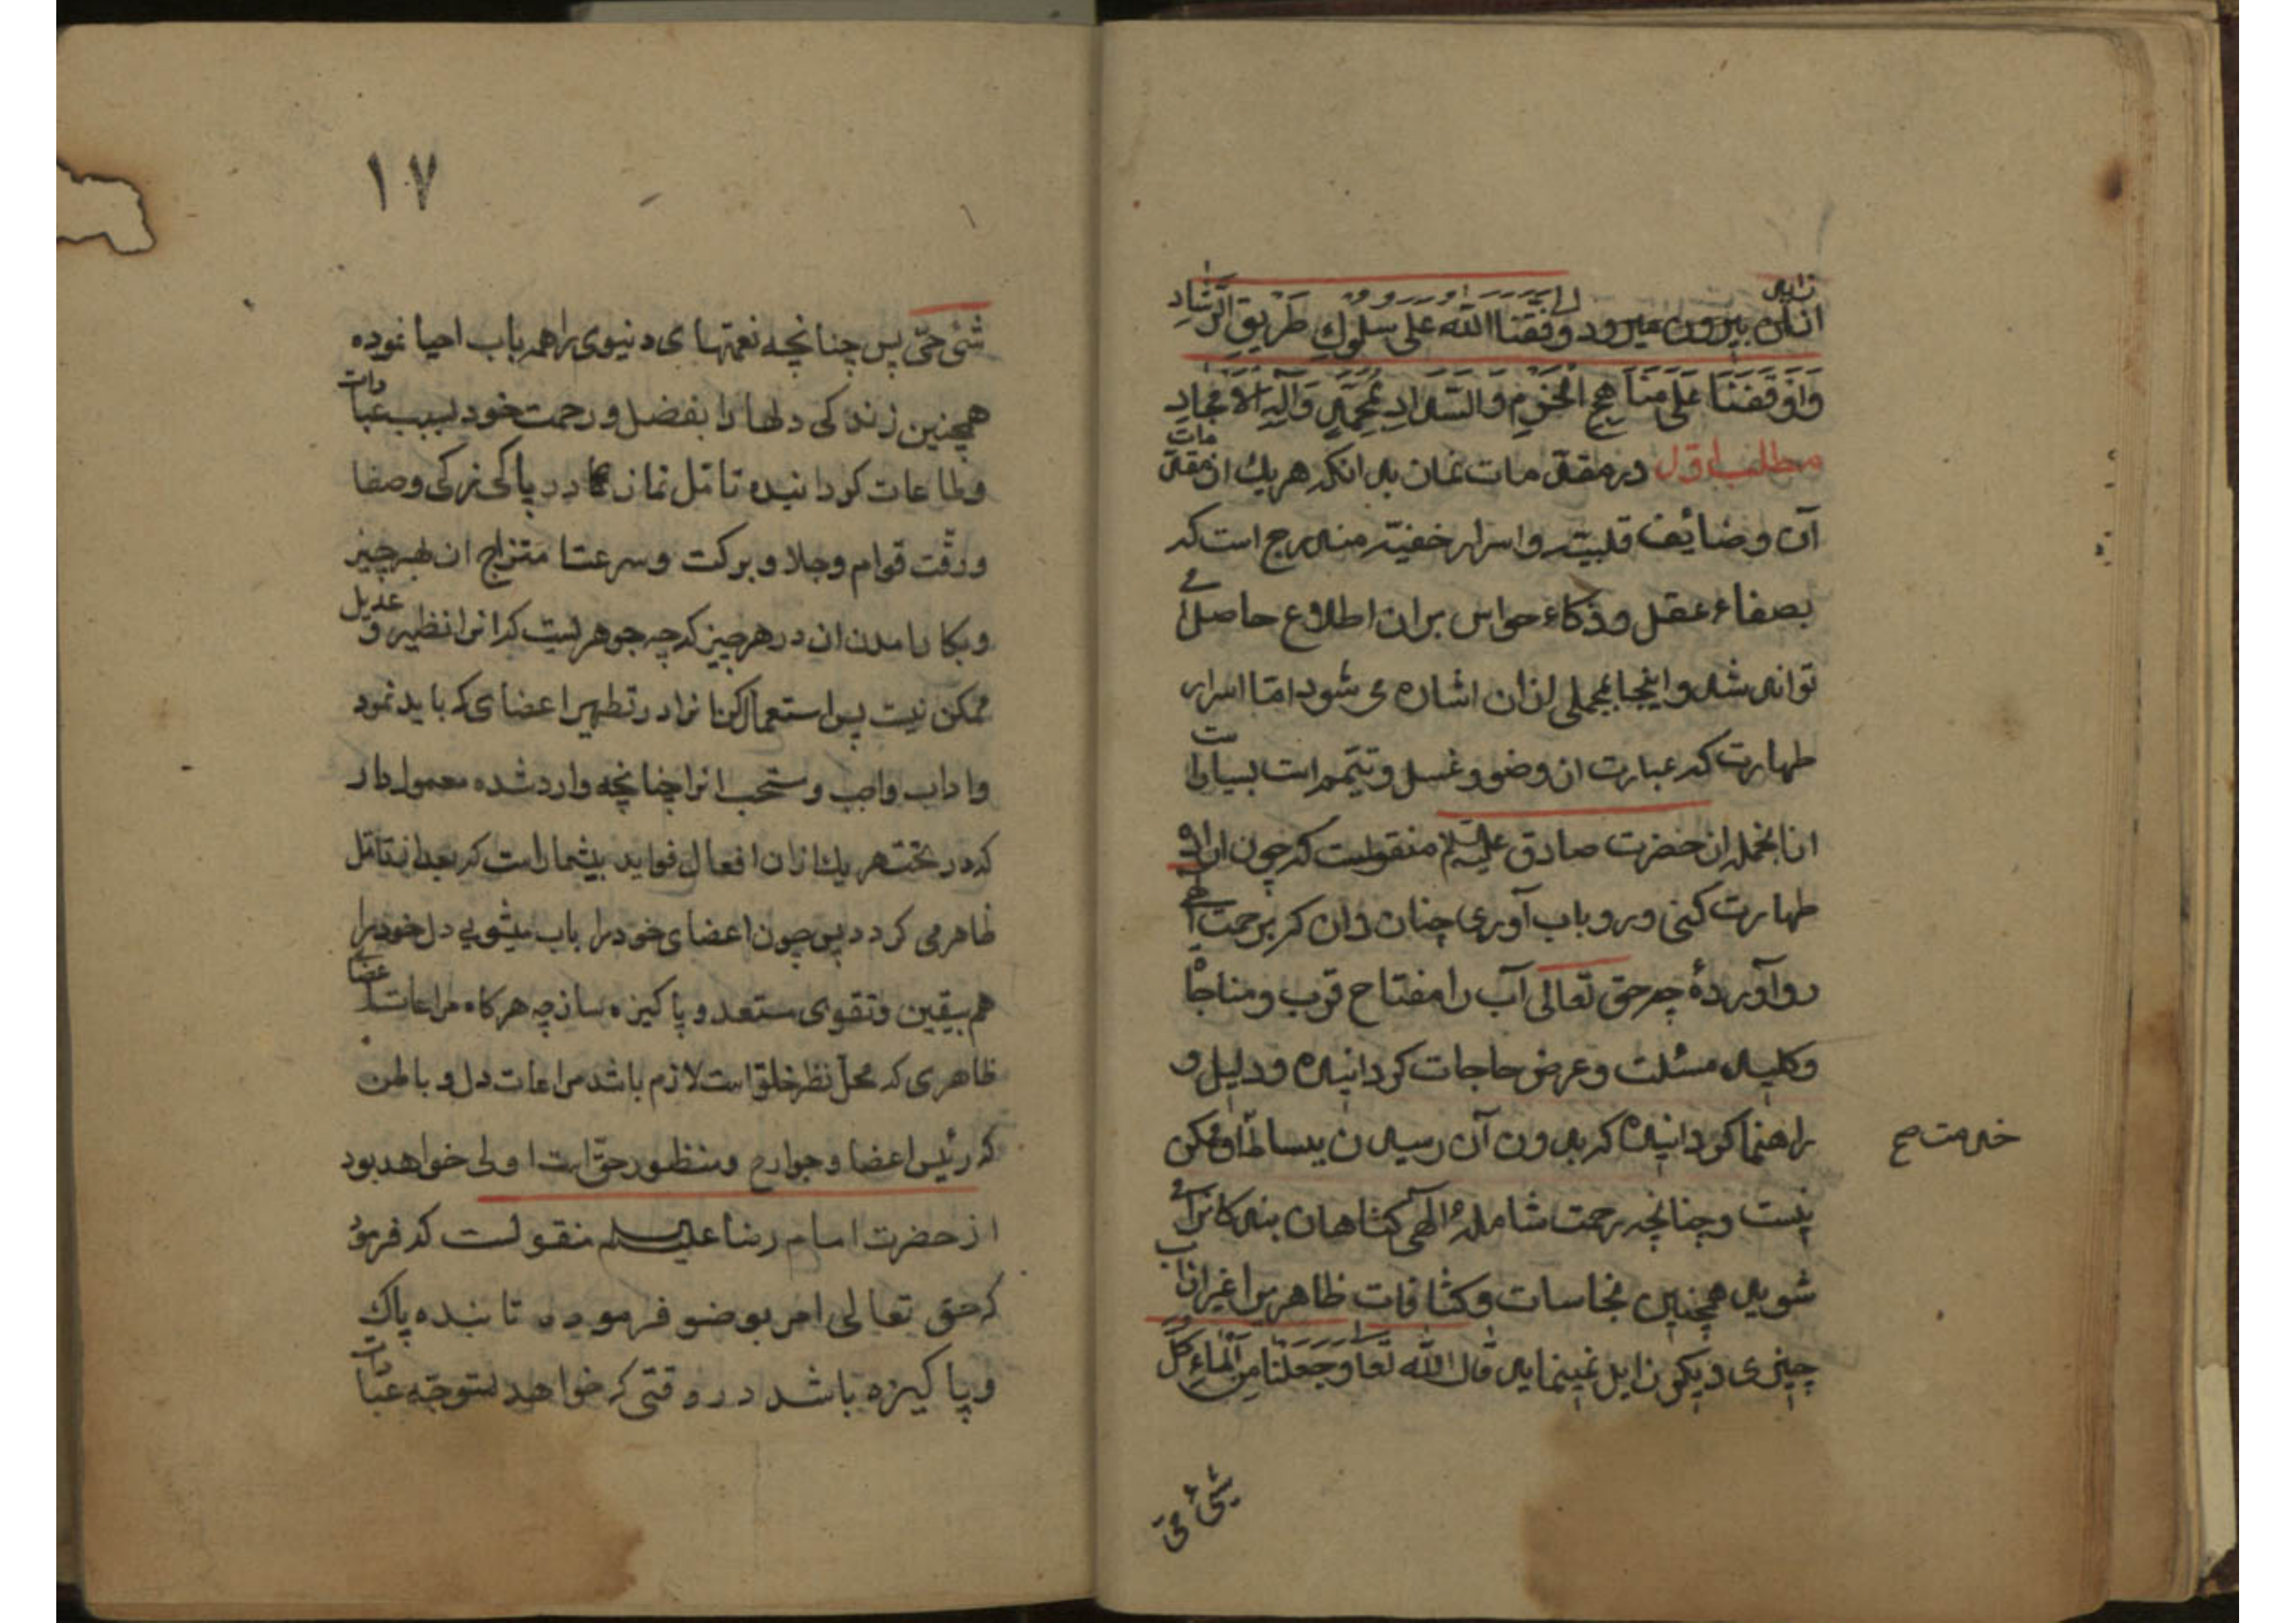 ازان بیرون میرود وفقنا الله علی سلوك طریق الرشاد
واوقفنا علی مناهج الحزم والسداد بمحمد وآله الامجاد
مطلب اول در مقدمات نماز بدانکه هریك از مقدمات
آن وضائف قلبیه واسرار خفیه مندرج است که
بصفاء عقل وذکاء حواس بران اطلاع حاصل
تواند شد واینجا بمجملی ازان اشاره می شود اما اسرار
طهارت که عبارت از وضو وغسل وتیمم است بسیار است
ازانجمله از حضرت صادق علیه السلام منقولست که چون اراده
طهارت کنی ورو باب آوری چنان دان که برحمت الهی
روآوردهٔ چه حق تعالی آب را مفتاح قرب ومناجاة
وکلید مسئلت وعرض حاجات کردانیده ودلیل و
راهنما کردانیده که بدون آن رسیدن ببساط او ممکن
خدمت صح
نیست وچنانچه رحمت شاملهٔ الهی کناهان بندکانرا می
شوید همچنین نجاسات وکثافات ظاهر را غیر از آب
چیزی دیکر زایل نمینماید قال الله تعا وجعلنا من الماء کل
شیء حی
١٧
شیء حی پس چنانچه نعمتهای دنیوی را همه باب احیا نموده
همچنین زندکی دلها را بفضل ورحمت خود بسبب عبادات
وطاعات کردانیده تامل نما در پاکیزکی وصفا
ورقت قوام وجلا وبرکت وسرعت امتزاج ان بهرچیز
وبکار امدن ان در هرچیز که چه جوهریست که انرا نظیر و عدیل
ممکن نیست پس استعمال کن انرا در تطهیر اعضای که باید نمود
واداب واجب ومستحب انرا چنانچه وارد شده معمول دار
که در تحت هریك ازان افعال فواید بیشمار است که بعد از تامل
ظاهر می کردد پس چون اعضای خود را باب میشویی دل خود را
هم بیقین وتقوی مستعد وپاکیزه ساز چه هرکاه مراعات اعضای
ظاهری که محل نظر خلق است لازم باشد مراعات دل و باطن
که رئیس اعضا وجوارح ومنظور حق است اولی خواهد بود
از حضرت امام رضا علیه السلام منقولست که فرمود
که حق تعالی امر بوضو فرموده تا بنده پاك
وپاکیزه باشد در وقتی که خواهد متوجه عبادات